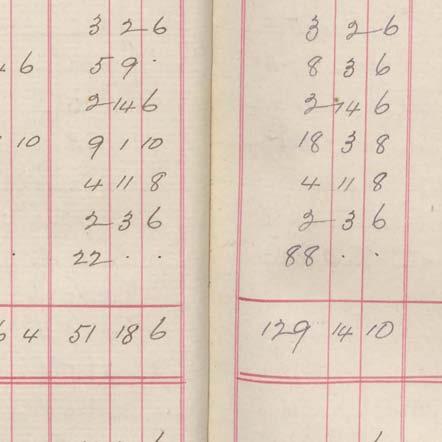 3 2 6
6 5 9 .
2 14 6
10 9 1 10
4 11 8
2 3 6
. 22 . .
6 4 51 18 6
3 2 6
8 3 6
2 14 6
18 3 8
4 11 8
2 3 6
88 . .
129 14 10